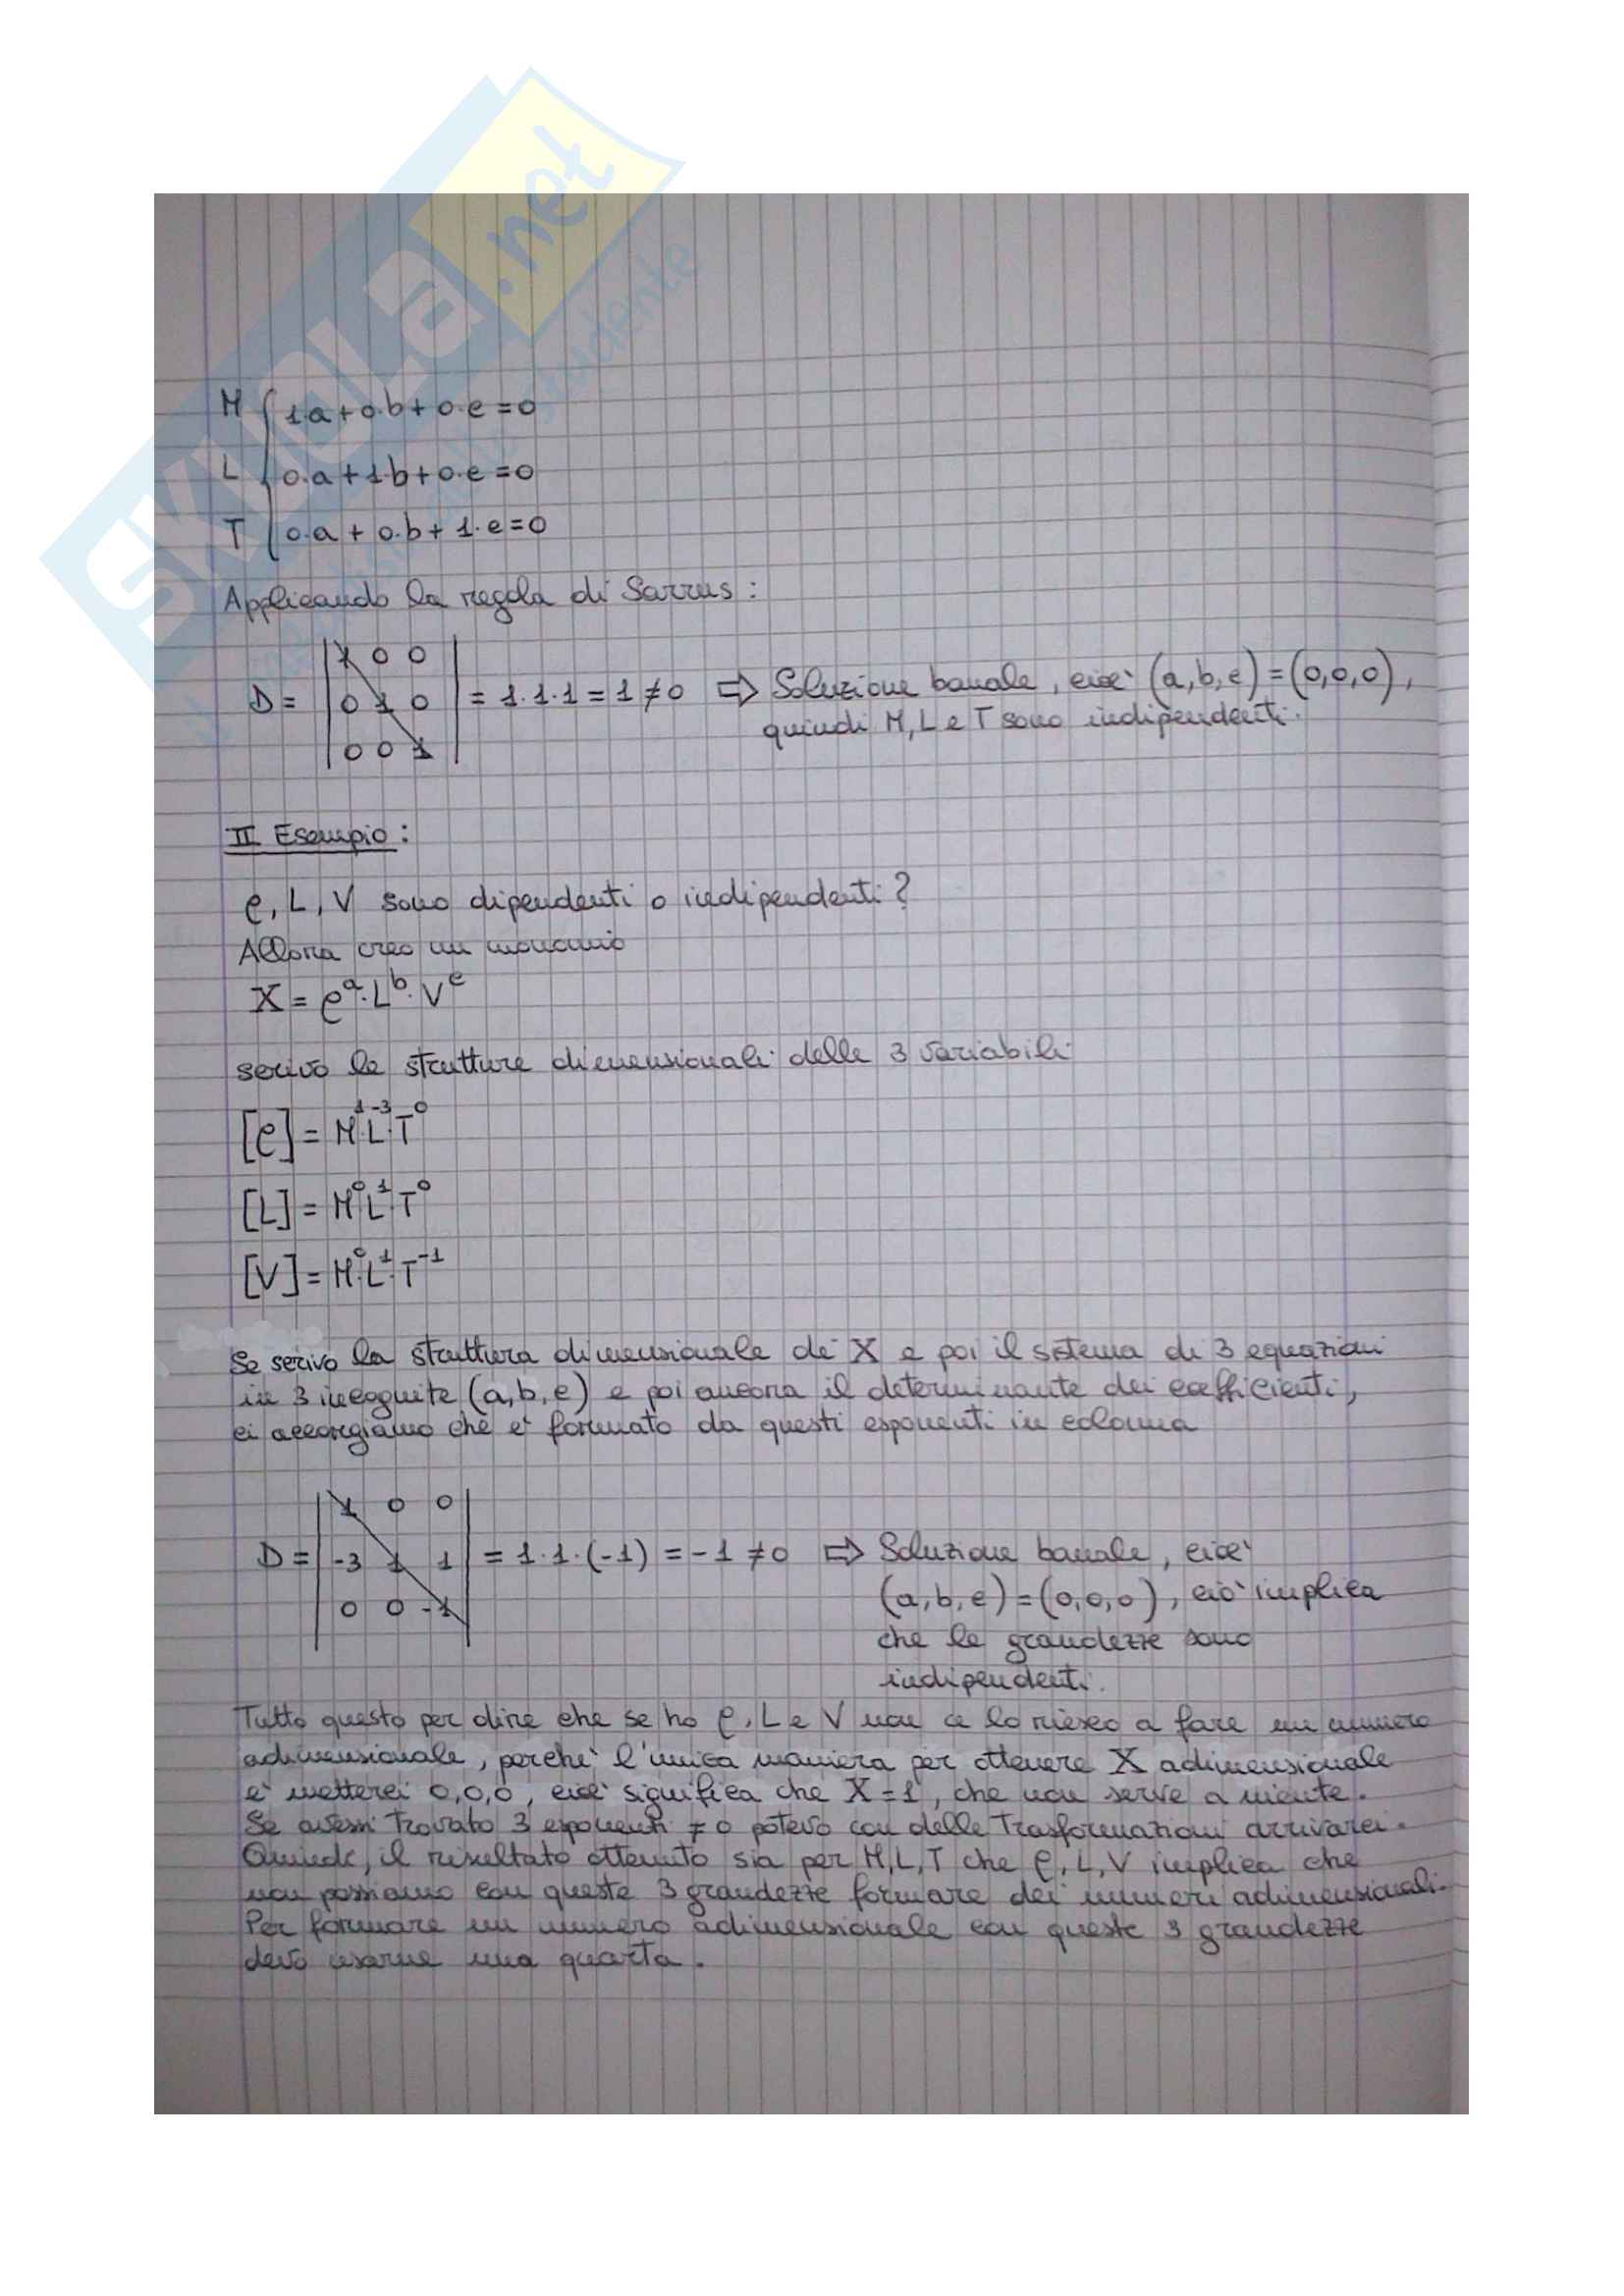 SKUOLa.net
M { 1·a + 0·b + 0·c = 0
L { 0·a + 1·b + 0·c = 0
T { 0·a + 0·b + 1·c = 0
Applicando la regola di Sarrus :
1 0 0
D = 0 1 0 = 1·1·1 = 1 ≠ 0 ⇒ Soluzione banale, cioè (a,b,c) = (0,0,0),
quindi M, L e T sono indipendenti.
0 0 1
II Esempio :
ρ, L, V sono dipendenti o indipendenti?
Allora creo un monomio
X = ρ^a · L^b · V^c
scrivo le strutture dimensionali delle 3 variabili
[ρ] = M^1 · L^-3 · T^0
[L] = M^0 · L^1 · T^0
[V] = M^0 · L^1 · T^-1
Se scrivo la struttura dimensionale di X e poi il sistema di 3 equazioni
in 3 incognite (a,b,c) e poi ancora il determinante dei coefficienti,
ci accorgiamo che è formato da questi esponenti in colonna
1 0 0
D = -3 1 1 = 1·1·(-1) = -1 ≠ 0 ⇒ Soluzione banale, cioè
(a,b,c) = (0,0,0), ciò implica
0 0 -1
che le grandezze sono
indipendenti.
Tutto questo per dire che se ho ρ, L e V non ce lo riesco a fare un numero
adimensionale, perchè l'unica maniera per ottenere X adimensionale
è metterci 0,0,0, cioè significa che X = 1, che non serve a niente.
Se avessi trovato 3 esponenti ≠ 0 potevo con delle trasformazioni arrivarci.
Quindi, il risultato ottenuto sia per M,L,T che ρ,L,V implica che
non possiamo con queste 3 grandezze formare dei numeri adimensionali.
Per formare un numero adimensionale con queste 3 grandezze
devo usarne una quarta.